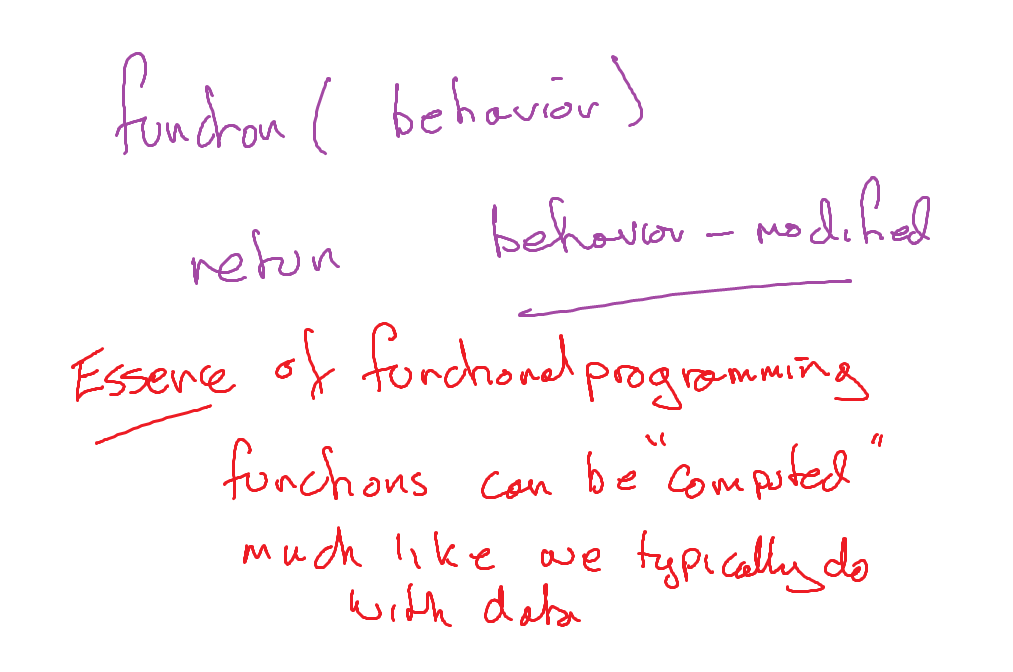 function ( behavior )
return behavior - modified
Essence of functional programming
functions can be "computed"
much like we typically do
with data